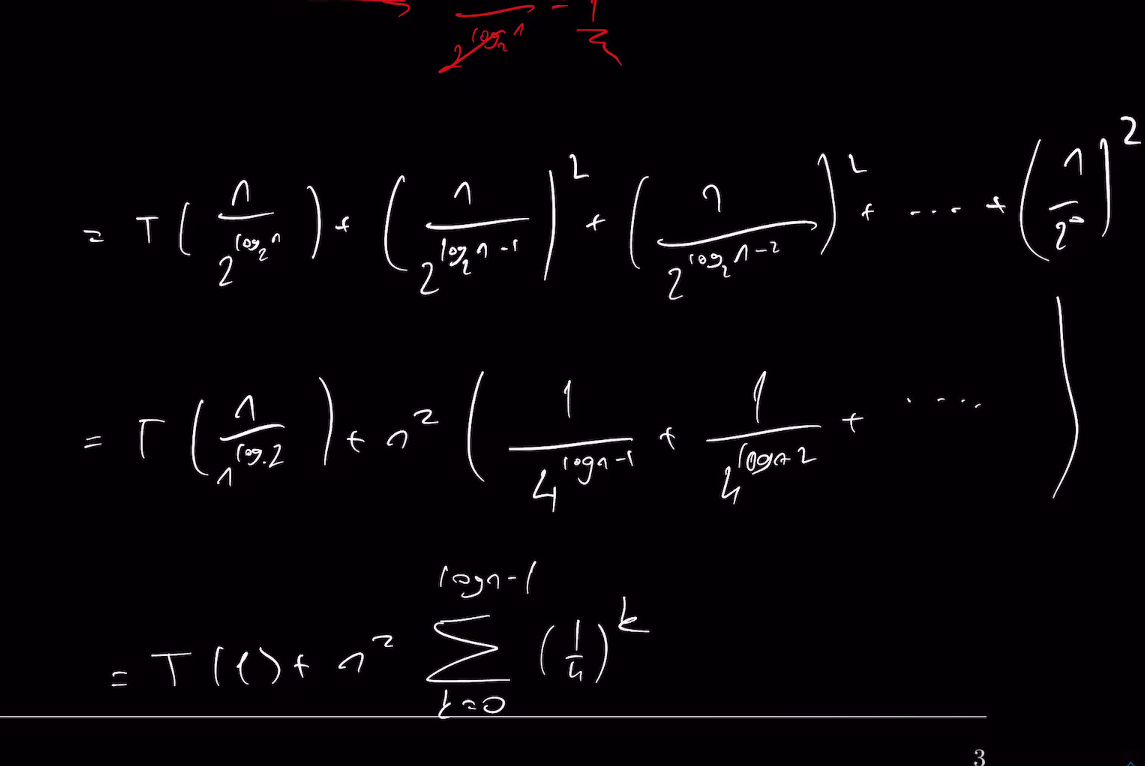 2^{log_2 n} = 1/2
= T(n/2^{log_2 n}) + (n/2^{log_2 n-1})^2 + (n/2^{log_2 n-2})^2 + .... + (n/2^0)^2
= T(n/n^{log.2}) + n^2 (1/4^{logn-1} + 1/4^{logn-2} + ....)
= T(1) + n^2 \sum_{k=0}^{logn-1} (1/4)^k
3